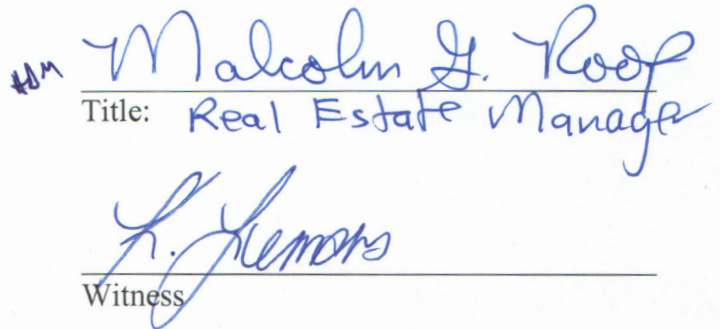 Malcolm G. Roop
Title: Real Estate Manager
Witness